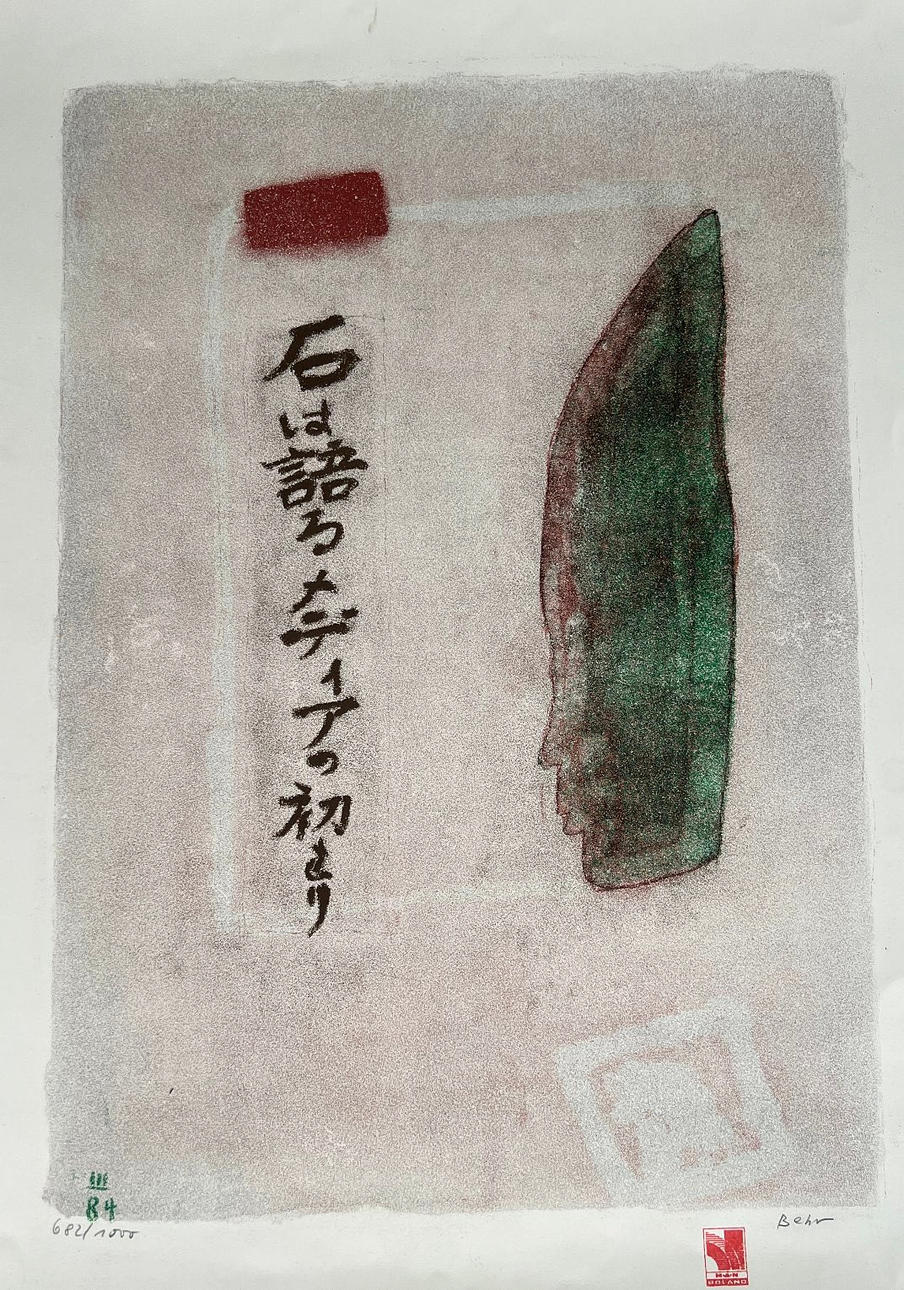 石は語るメディアの初まり
III
84
682/1000
Behr
M·A·N
ROLAND